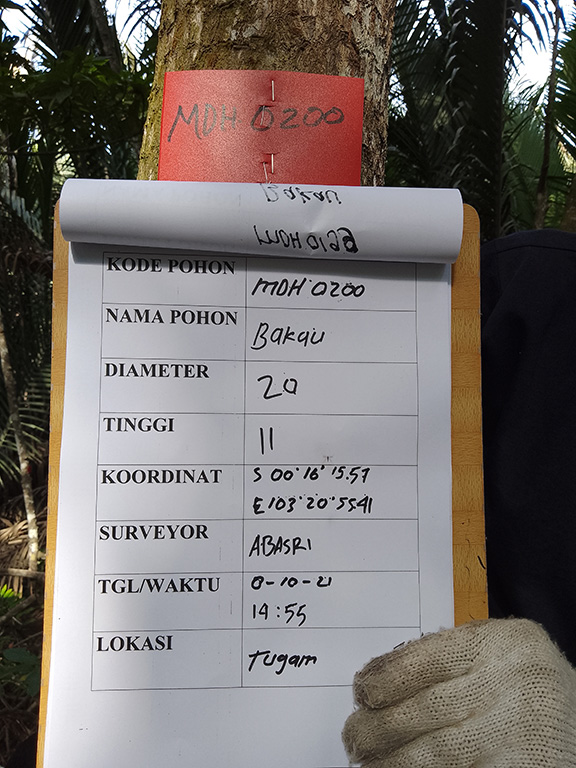 MDH 0200
Bakau
MDH 0199
KODE POHON MDH 0200
NAMA POHON Bakau
DIAMETER 20
TINGGI 11
KOORDINAT S 00° 16' 15.57
E 103° 20' 55.41
SURVEYOR ABASRI
TGL/WAKTU 0-10-21
14:55
LOKASI Tugam